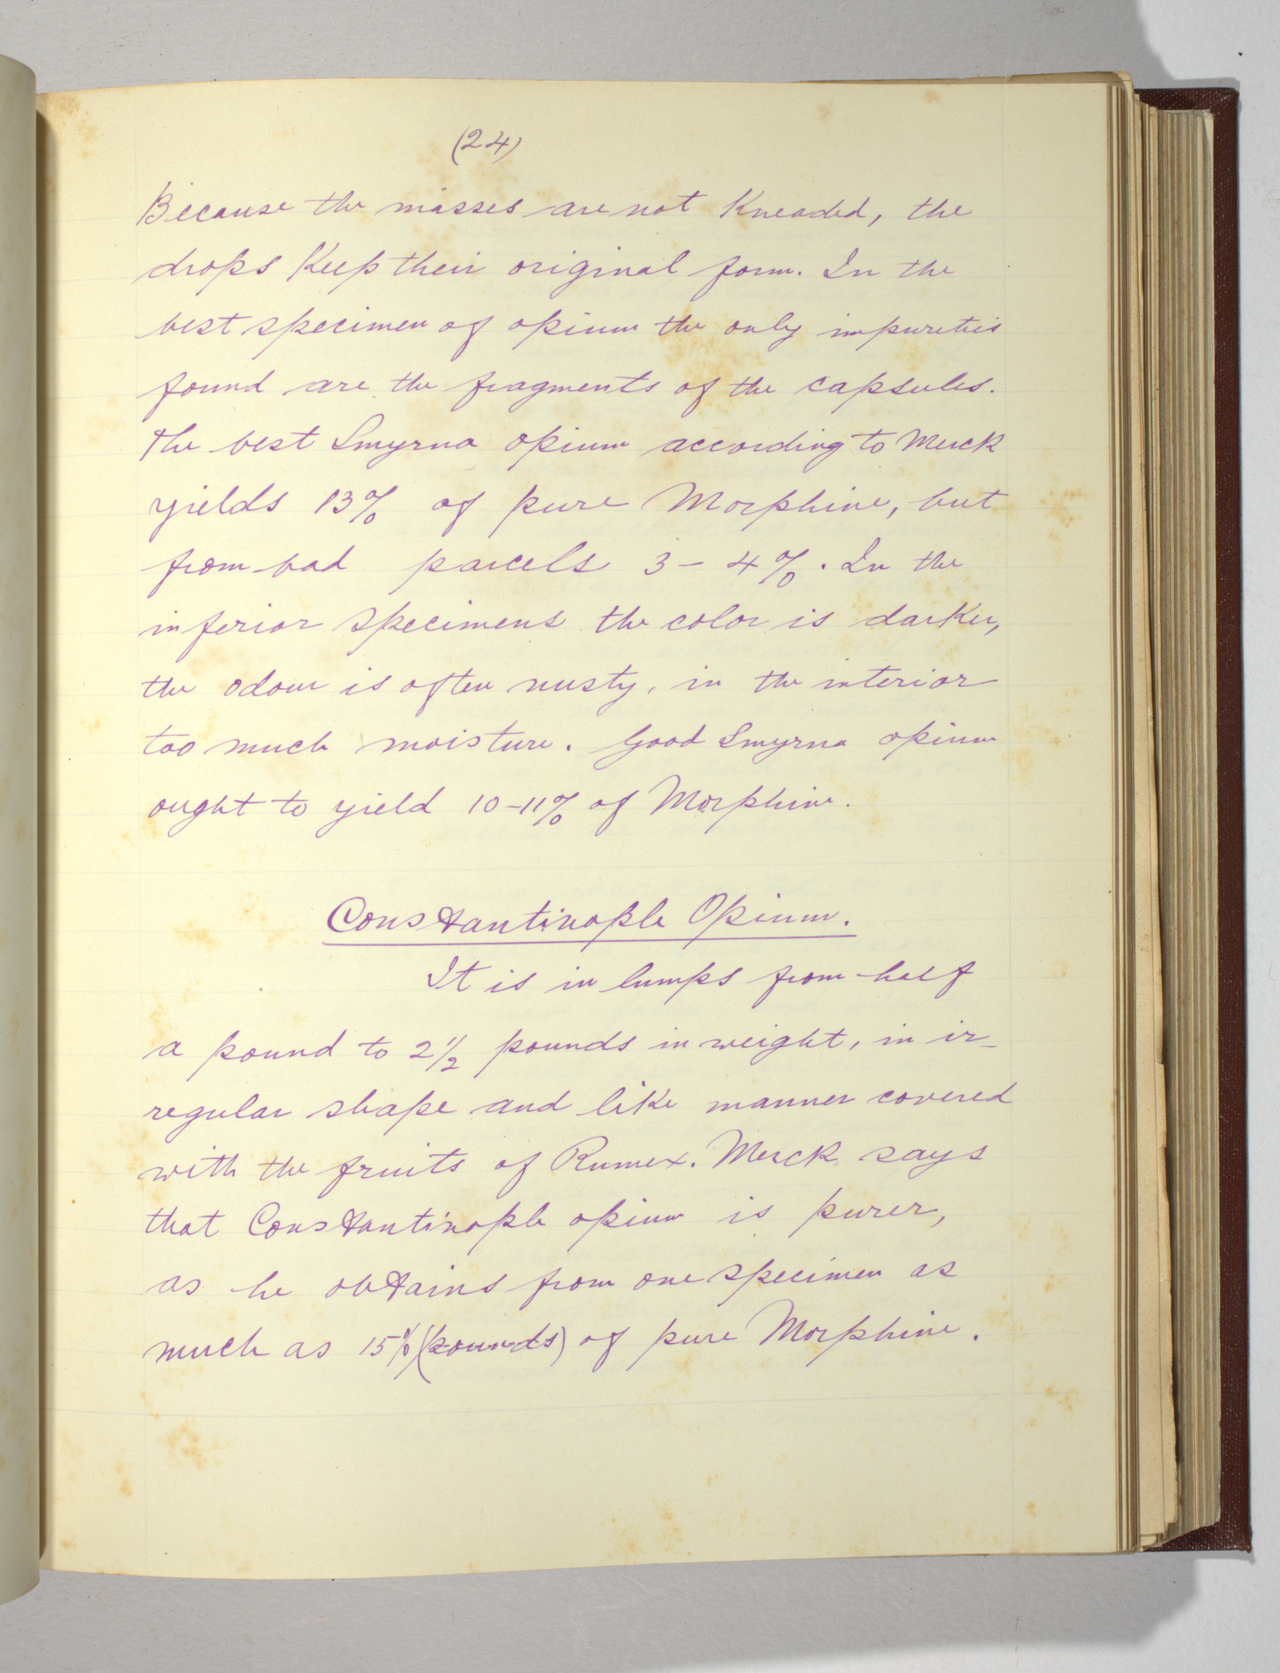 (24)
Because the masses are not Kneaded, the
drops Keep their original form. In the
best specimen of opium the only impurities
found are the fragments of the capsules.
The best Smyrna opium according to Merck
yields 13% of pure Morphine, but
from bad parcels 3 - 4%. In the
inferior specimens the color is darker,
the odour is often musty, in the interior
too much moisture. Good Smyrna opium
ought to yield 10-11% of Morphine.
Constantinople Opium.
It is in lumps from half
a pound to 2 1/2 pounds in weight, in ir-
regular shape and like manner covered
with the fruits of Rumex. Merck says
that Constantinople opium is purer,
as he obtains from one specimen as
much as 15% (pounds) of pure Morphine.